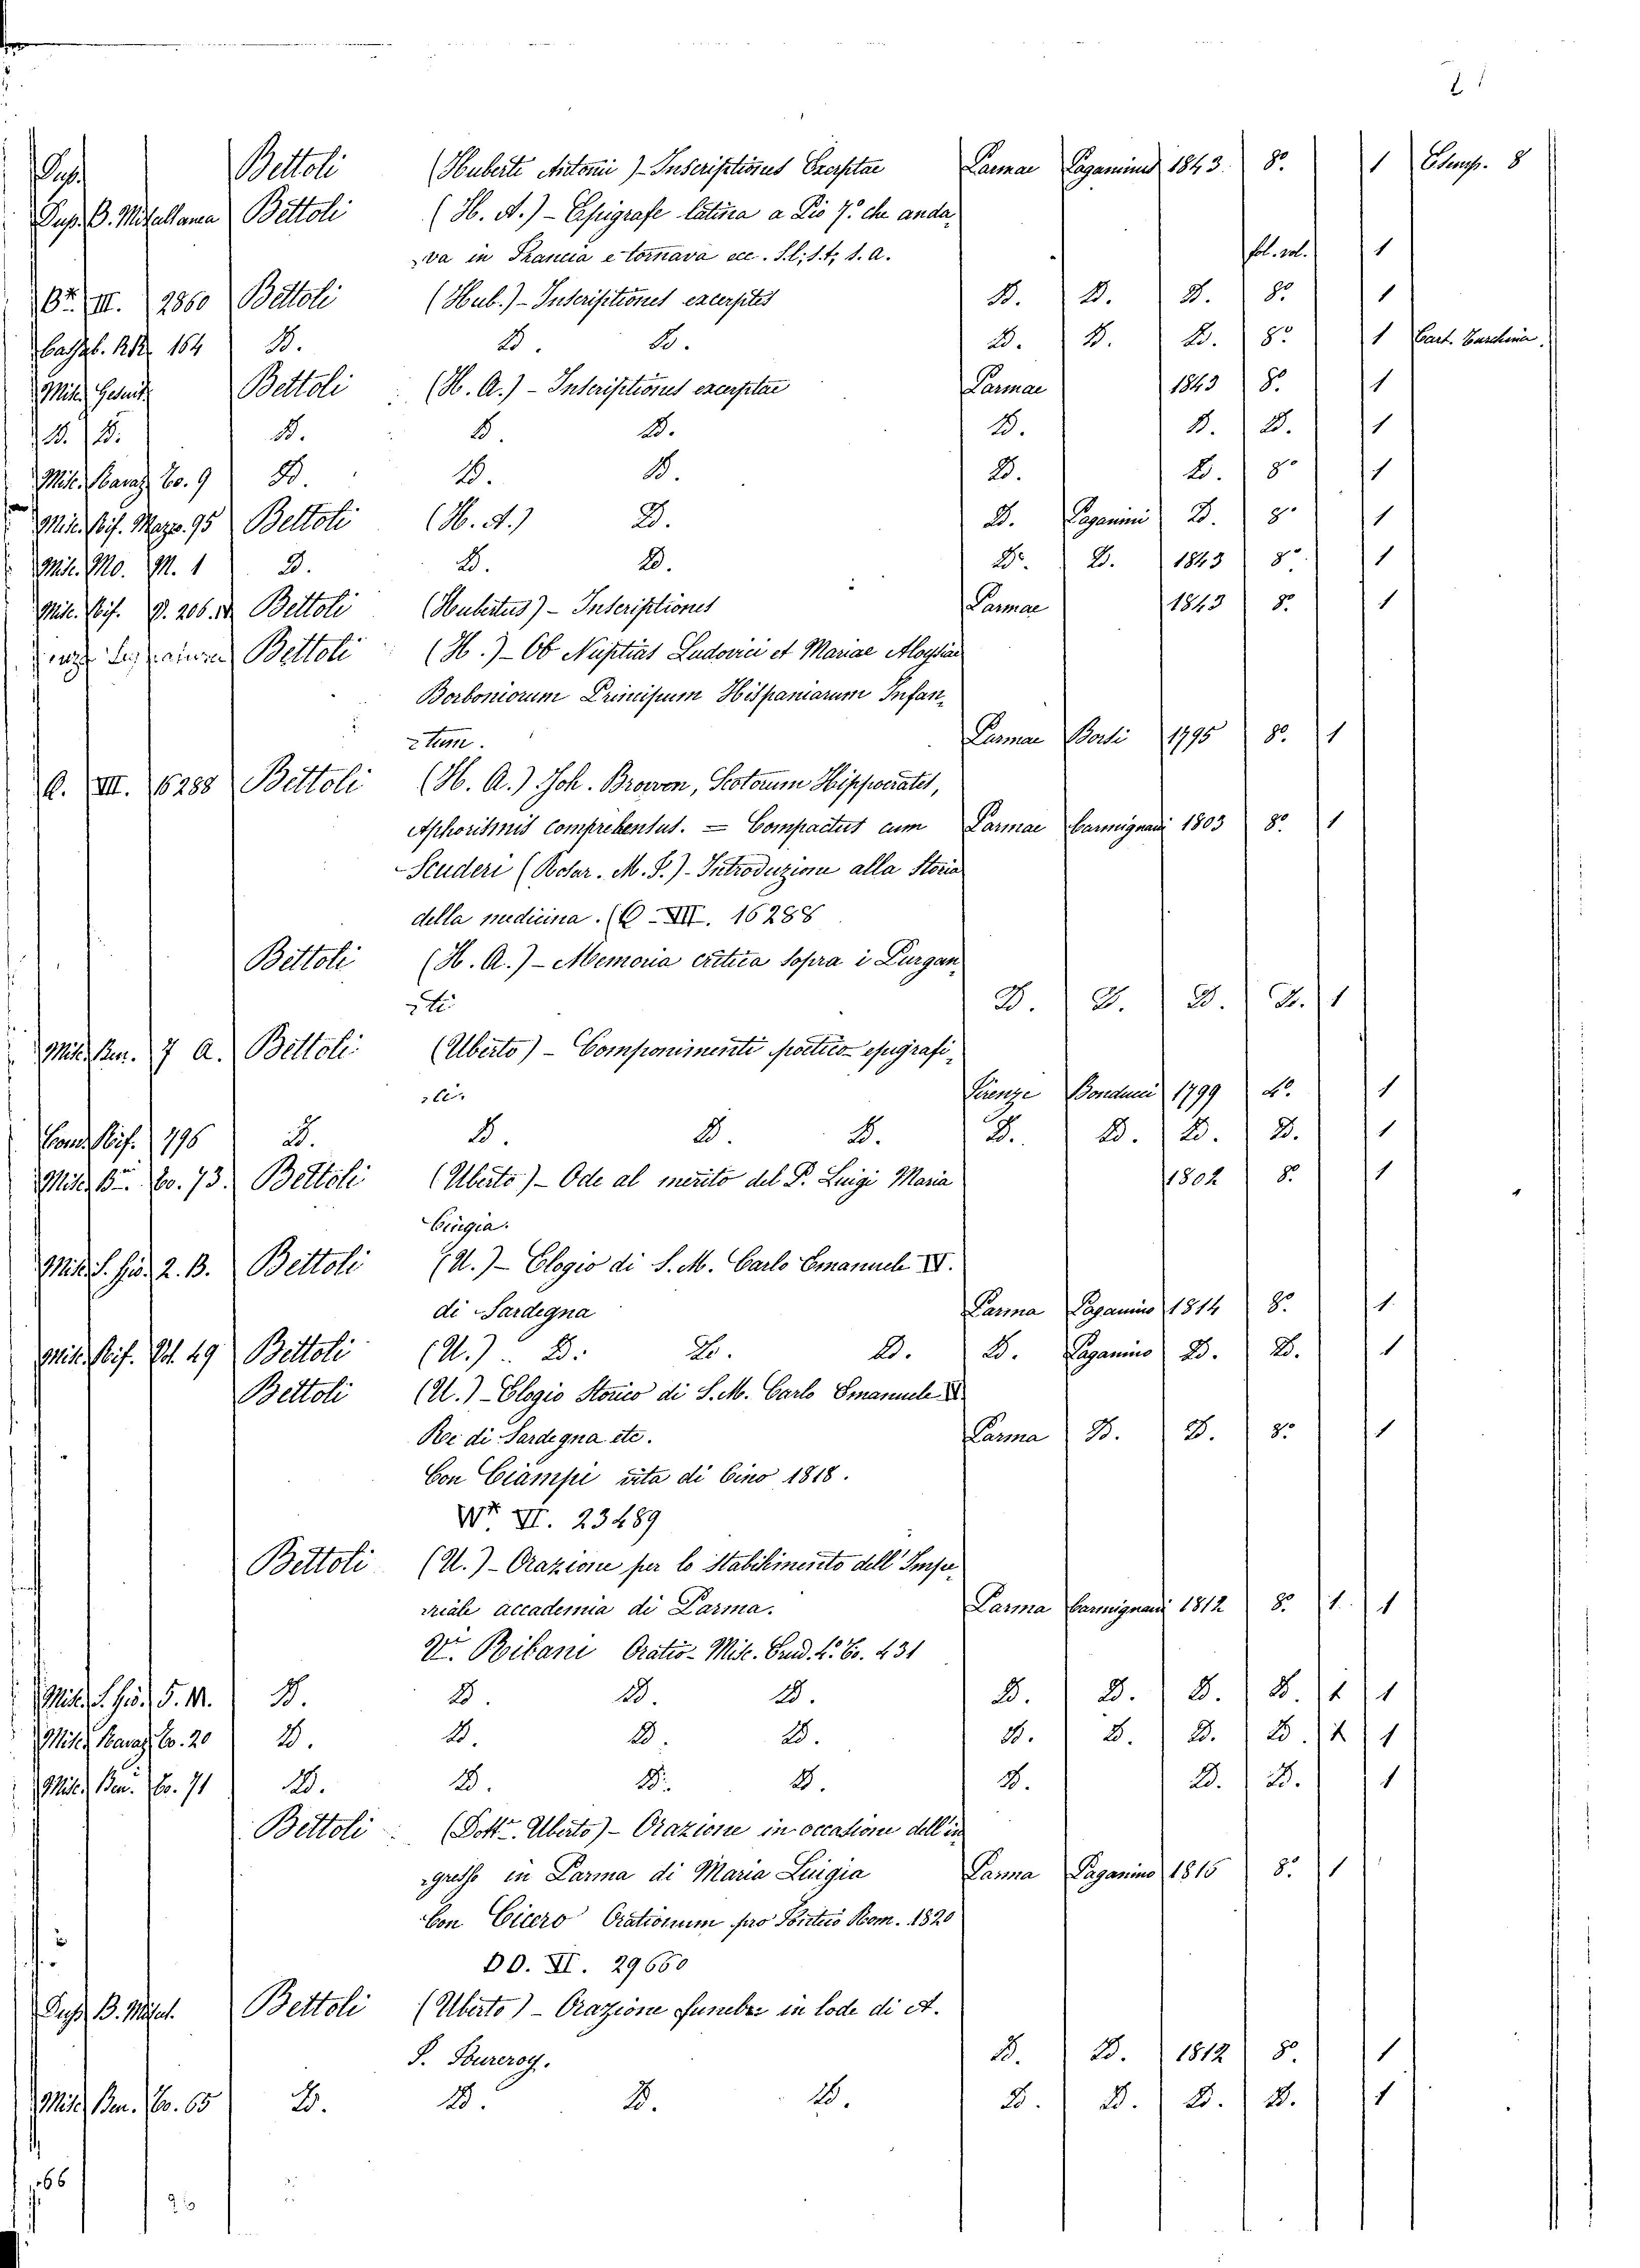 Dup. Bettoli (Huberte Antonii) - Inscriptiones Excerptae Parmae Paganinus 1843. 8º 1 Esemp. 8
Dup. B. Bettoli (H. A.) - Epigrafe latina a Pio 7º che anda,
va in Francia e tornava ecc. S.l; s.t; s.a. fol. vol. 1
III. 2860 Bettoli (Hub.) - Inscriptiones excerptes D. D. D. 8º 1
164 D. D. D. D. D. D. 8º 1 Cart.
Misc. Bettoli (H. A.) - Inscriptiones excerptae Parmae 1843 8º 1
D. D. D. D. D. D. D. D. 1
Misc. Co. 9 D. D. D. D. D. 8º 1
Misc. Rif. 95 Bettoli (H. A.) D. D. Paganini D. 8º 1
Misc. Mo. M. 1 D. D. D. D. D. 1843 8º 1
Misc. Rif. Bettoli (Hubertus) - Inscriptiones Parmae 1843 8º 1
Bettoli (H.) - Ob Nuptias Ludovici et Mariae Aloysiae
Borboniorum Principum Hispaniarum Infan,
tum. Parmae 1795 8º 1
VIII. 16288 Bettoli (H. A.) Joh. Browon, Scotorum Hippocrates,
Aphorismis comprehensus. = Compactus cum Parmae Carmignani 1803 8º 1
Scuderi (Rosar. M. S.) - Introduzione alla Storia
della medicina. (C - VIII. 16288
Bettoli (H. A.) - Memoria critica sopra i Purgan,
ti D. D. D. D. 1
Misc. 7 A. Bettoli (Uberto) - Componimenti poetico-epigrafi,
ci. Firenze Bonducci 1799 4º 1
Rif. 796 D. D. D. D. D. D. D. D. 1
Misc. Co. 73. Bettoli (Uberto) - Ode al merito del P. Luigi Maria 1802 8º 1
Cingia.
Misc. S. 2. B. Bettoli (U.) - Elogio di S. M. Carlo Emanuele IV.
di Sardegna Parma Paganino 1814 8º 1
Misc. Rif. Vol. 49 Bettoli (U.) D. D. D. D. Paganino D. D. 1
Bettoli (U.) - Elogio Storico di S. M. Carlo Emanuele
Re di Sardegna etc. Parma D. D. 8º 1
Con Ciampi vita di Cino 1818.
VI. 23489
Bettoli (U.) - Orazione per lo stabilimento dell'Impe,
riale accademia di Parma. Parma Carmignani 1812 8º 1 1
Vr. Bibani Oratio - Misc. Erud. 4º Co. 431
Misc. S. 5. M. D. D. D. D. D. D. D. D. 1 1
Misc. Co. 20 D. D. D. D. D. D. D. D. 1 1
Misc. Co. 71 D. D. D. D. D. D. D. 1
Bettoli (Dottr. Uberto) - Orazione in occasione dell'in
gresso in Parma di Maria Luigia Parma Paganino 1815 8º 1
Con Cicero Orationum pro Fonteio Rom. 1820
DD. VI. 29660
Dup. B. Bettoli (Uberto) - Orazione funebre in lode di A.
F. Foureroy. D. D. 1812 8º 1
Misc. Co. 65 D. D. D. D. D. D. D. D. 1